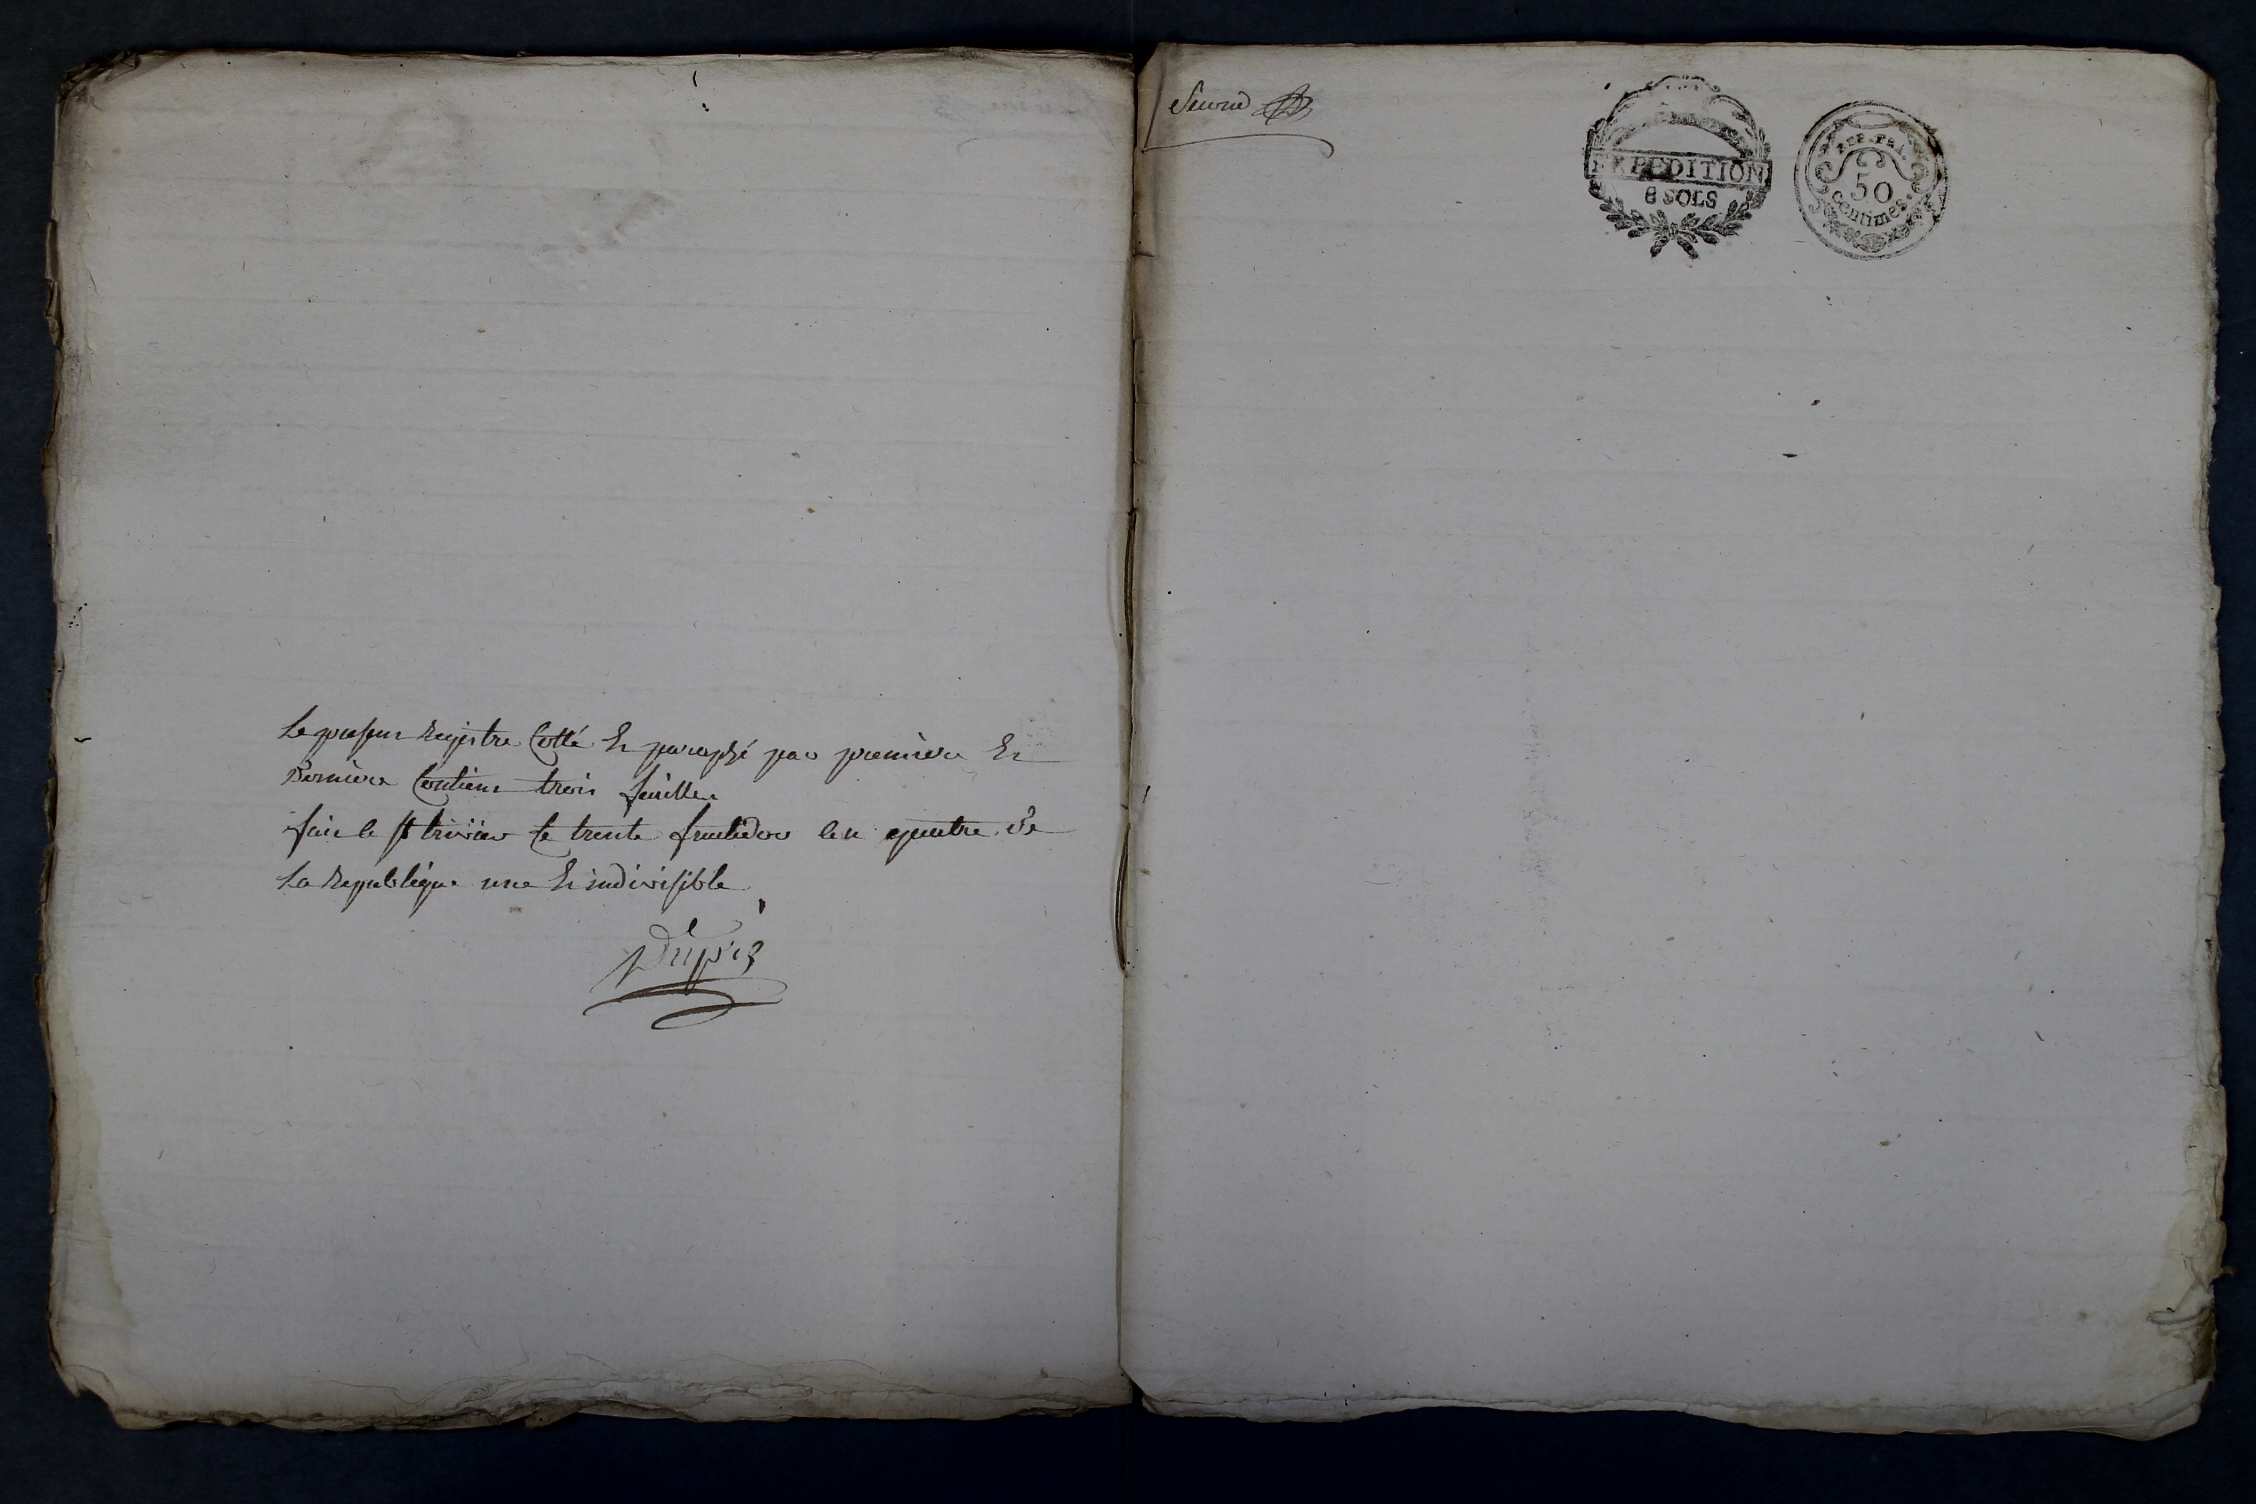 Le present Registre Cotté et paraphé par premiere et
Derniere Contient trois feuilles
fait a St trivier le trente fructidor l'an quatre de
La Republique une et indivisible
Second
EXPEDITION
8 SOLS
50
centimes.